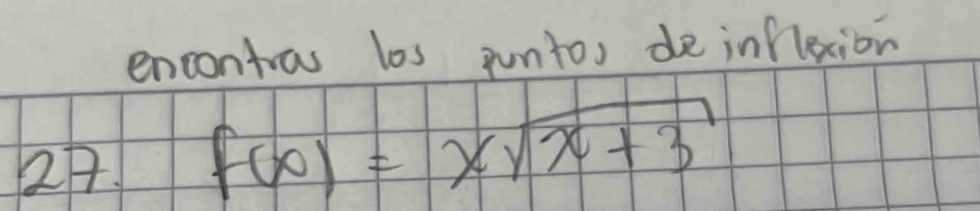 encontras los puntos de inflexión
27. f(x) = x√x+3